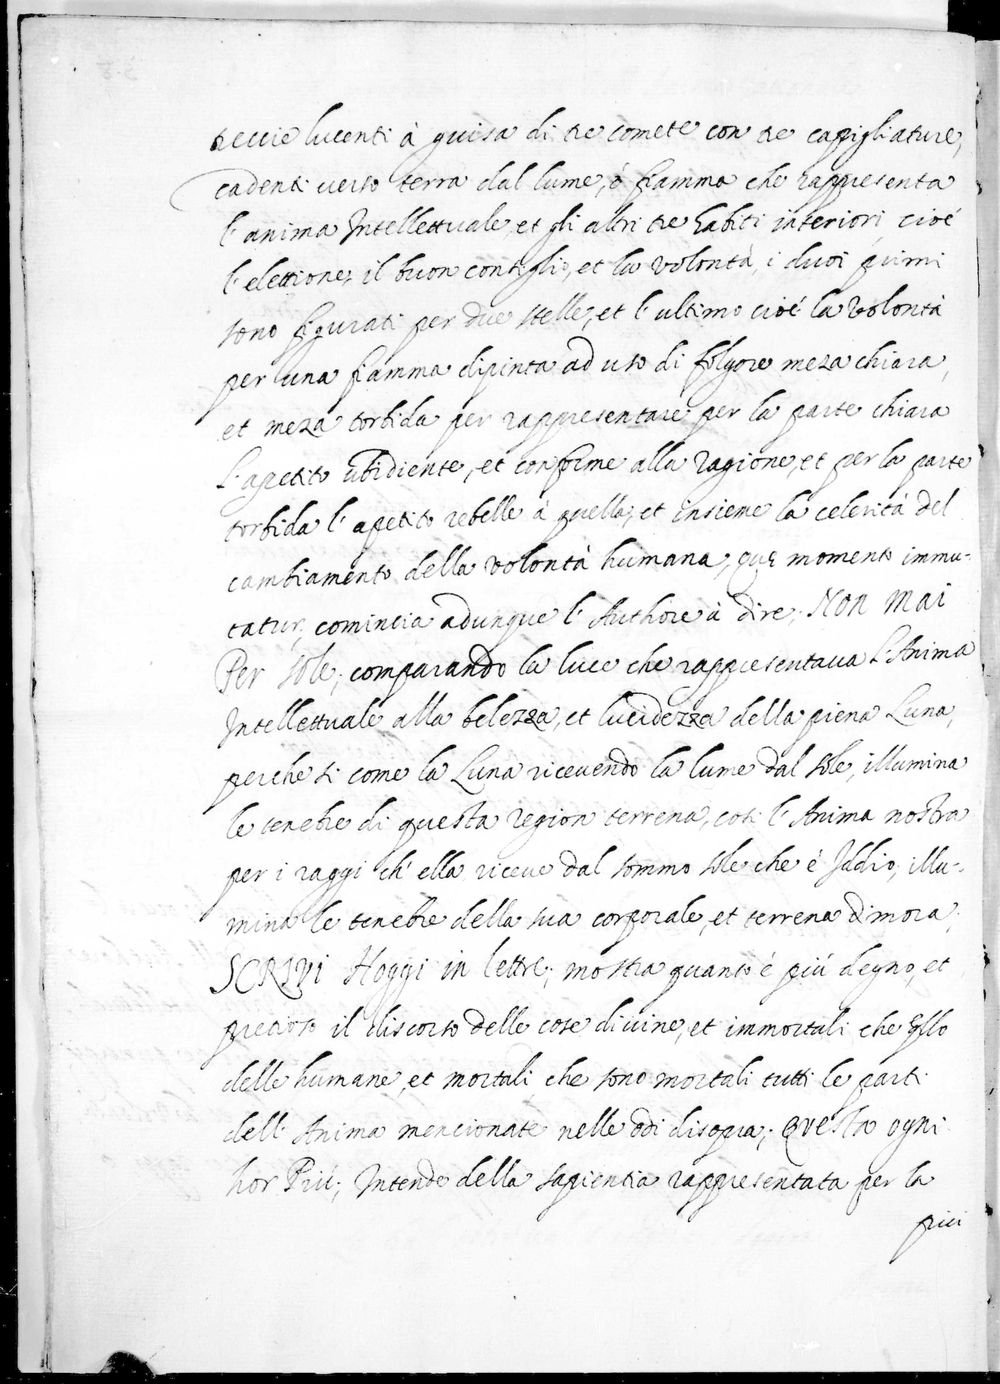 treccie lucenti à guisa di tre comete con tre capigliature,
cadenti verso terra dal lume, ò fiamma che rappresenta
l'anima Intellettuale, et gli altri tre habiti interiori, cioé
l'elettione, il buon consiglio, et la volontà, i duoi primi
sono figurati per due stelle, et l'ultimo cioé la volontà
per una fiamma dipinta ad uso di folgore meza chiara,
et meza torbida per rappresentare per la parte chiara
l'apetito ubidiente, et conforme alla ragione, et per la parte
torbida l'apetito rebelle à quella, et insieme la celerità del
cambiamento della volontà humana, que momento immu-
tatur, comincia adunque l'Authore à dire; Non mai
Per sole; comparando la luce che rappresentava l'Anima
Intellettuale alla belezza, et lucidezza della piena Luna,
perche si come la Luna ricevendo la lume dal sole, illumina
le tenebre di questa region terrena, cosi l'Anima nostra
per i raggi ch'ella riceve dal sommo sole che è Iddio, illu-
mina le tenebre della sua corporale, et terrena dimora;
SCRIVI Hoggi in lettre; mostra quanto é più degno, et
precioso il discorso delle cose divine, et immortali che qllo
delle humane, et mortali, che sono mortali tutti le parti
dell'Anima mencionate nelle odi disopra; Questa ogni
hor Più; Intende della sapientia rappresentata per la
più